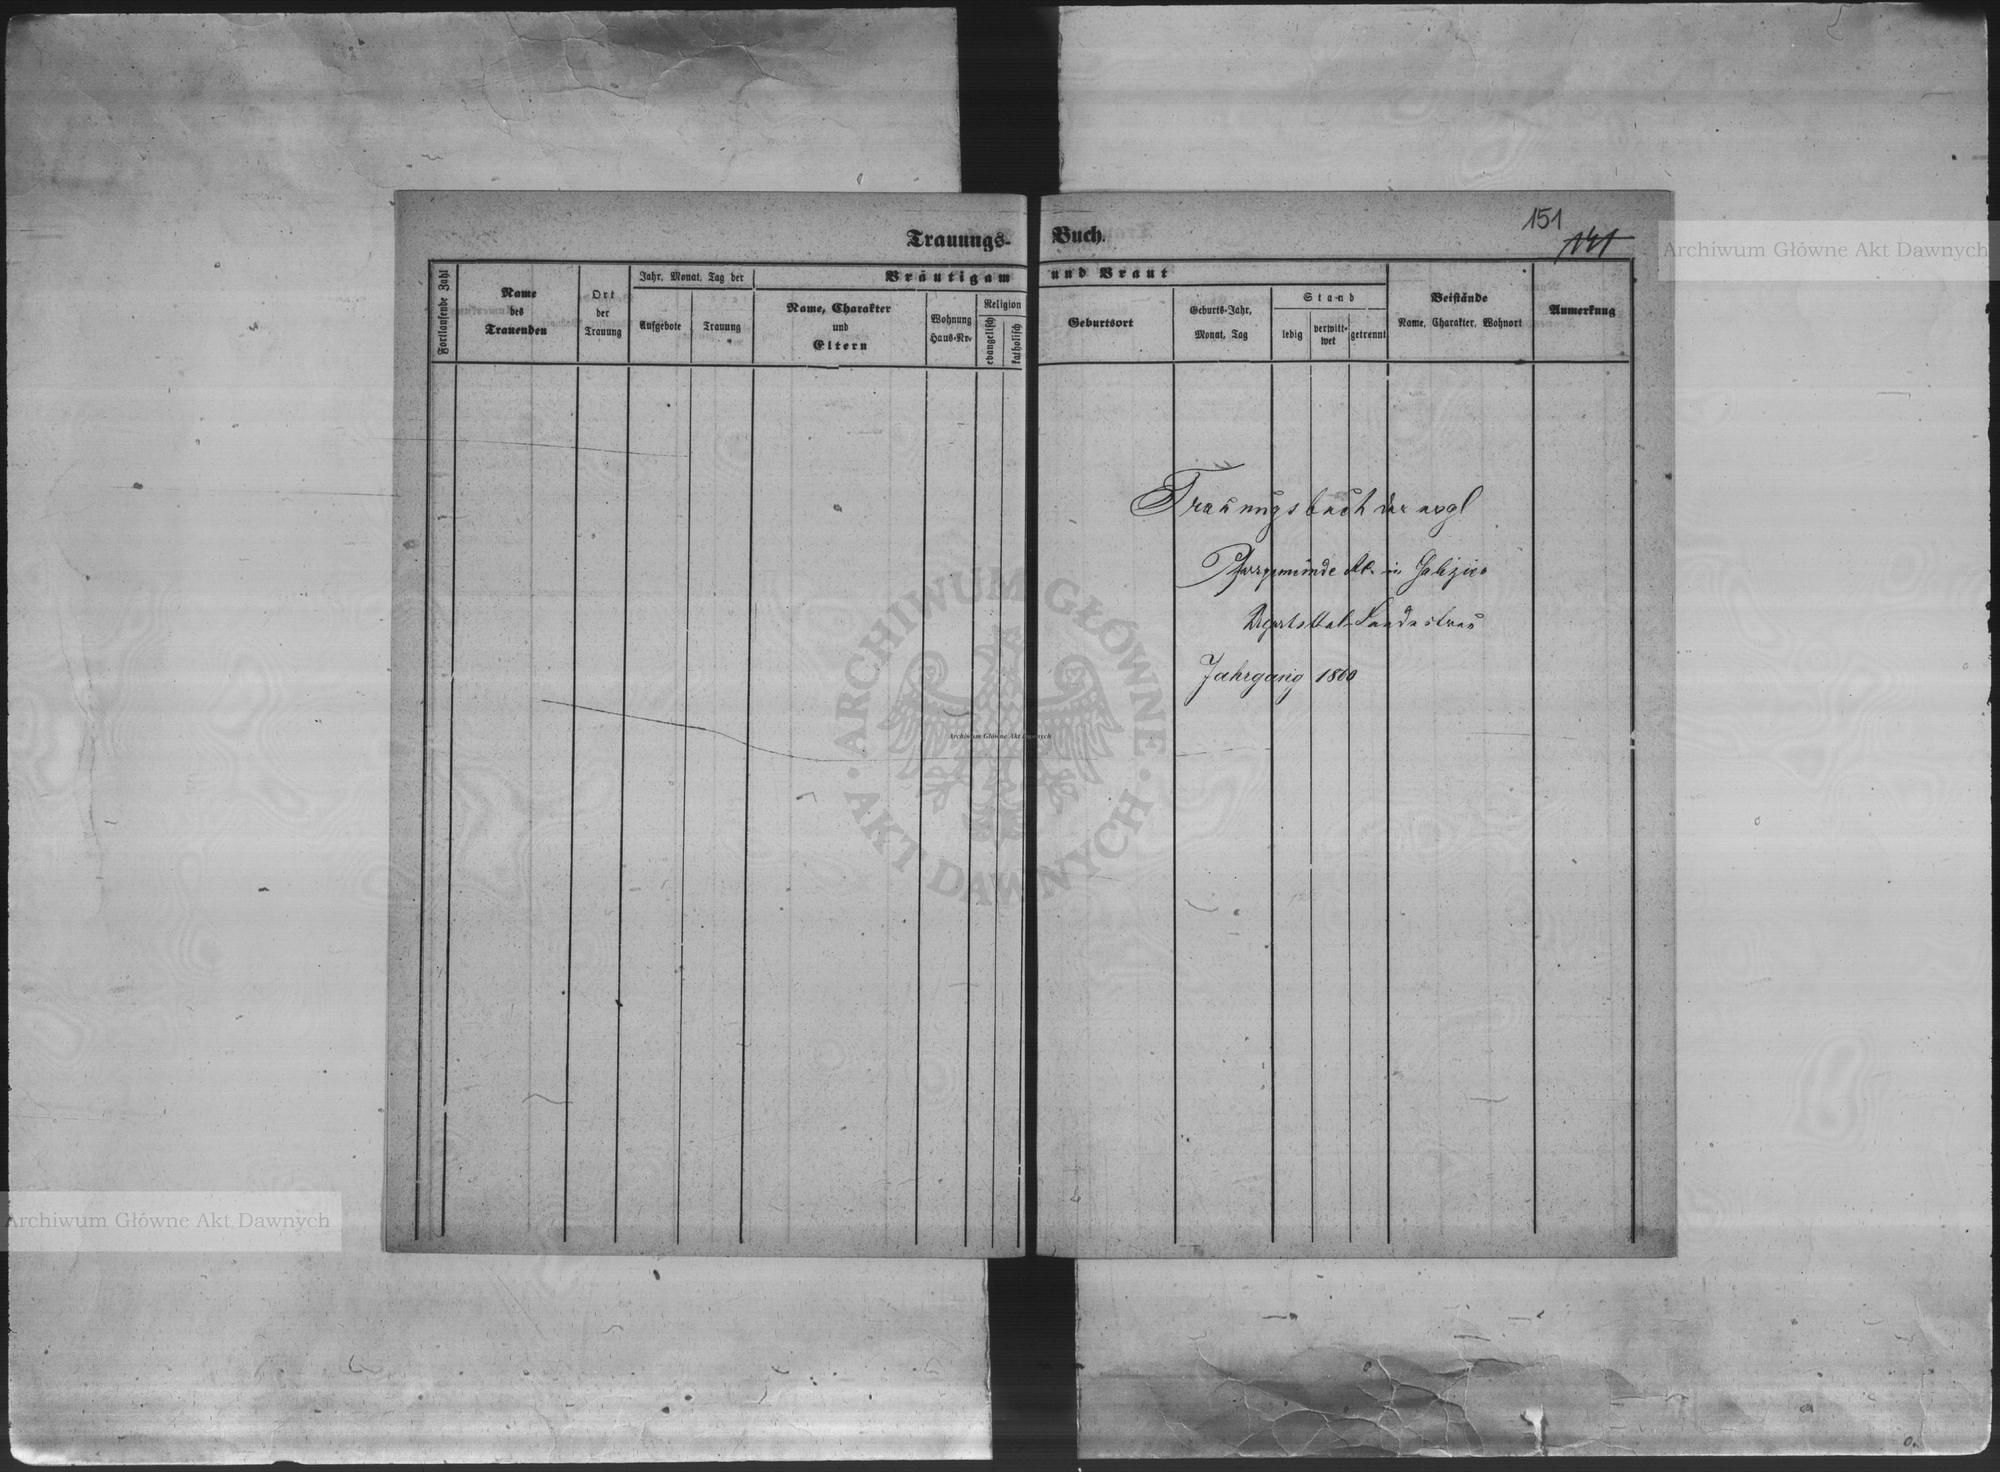 151
141
Trauungs-Buch.
Fortlaufende Zahl
Name
des
Trauenden
Ort
der
Trauung
Jahr, Monat, Tag der
Aufgebote
Trauung
Bräutigam und Braut
Name, Charakter
und
Eltern
Wohnung
Haus-Nr.
Religion
evangelisch
katholisch
Geburtsort
Geburts-Jahr,
Monat, Tag
Stand
ledig
verwitt-
wet
getrennt
Beistände
Name, Charakter, Wohnort
Anmerkung
Trauungsbuch der evgl
Pfarrgemeinde in Galizien
Jahrgang 1860
Archiwum Główne Akt Dawnych
ARCHIWUM GŁÓWNE AKT DAWNYCH
Archiwum Główne Akt Dawnych
Archiwum Główne Akt Dawnych